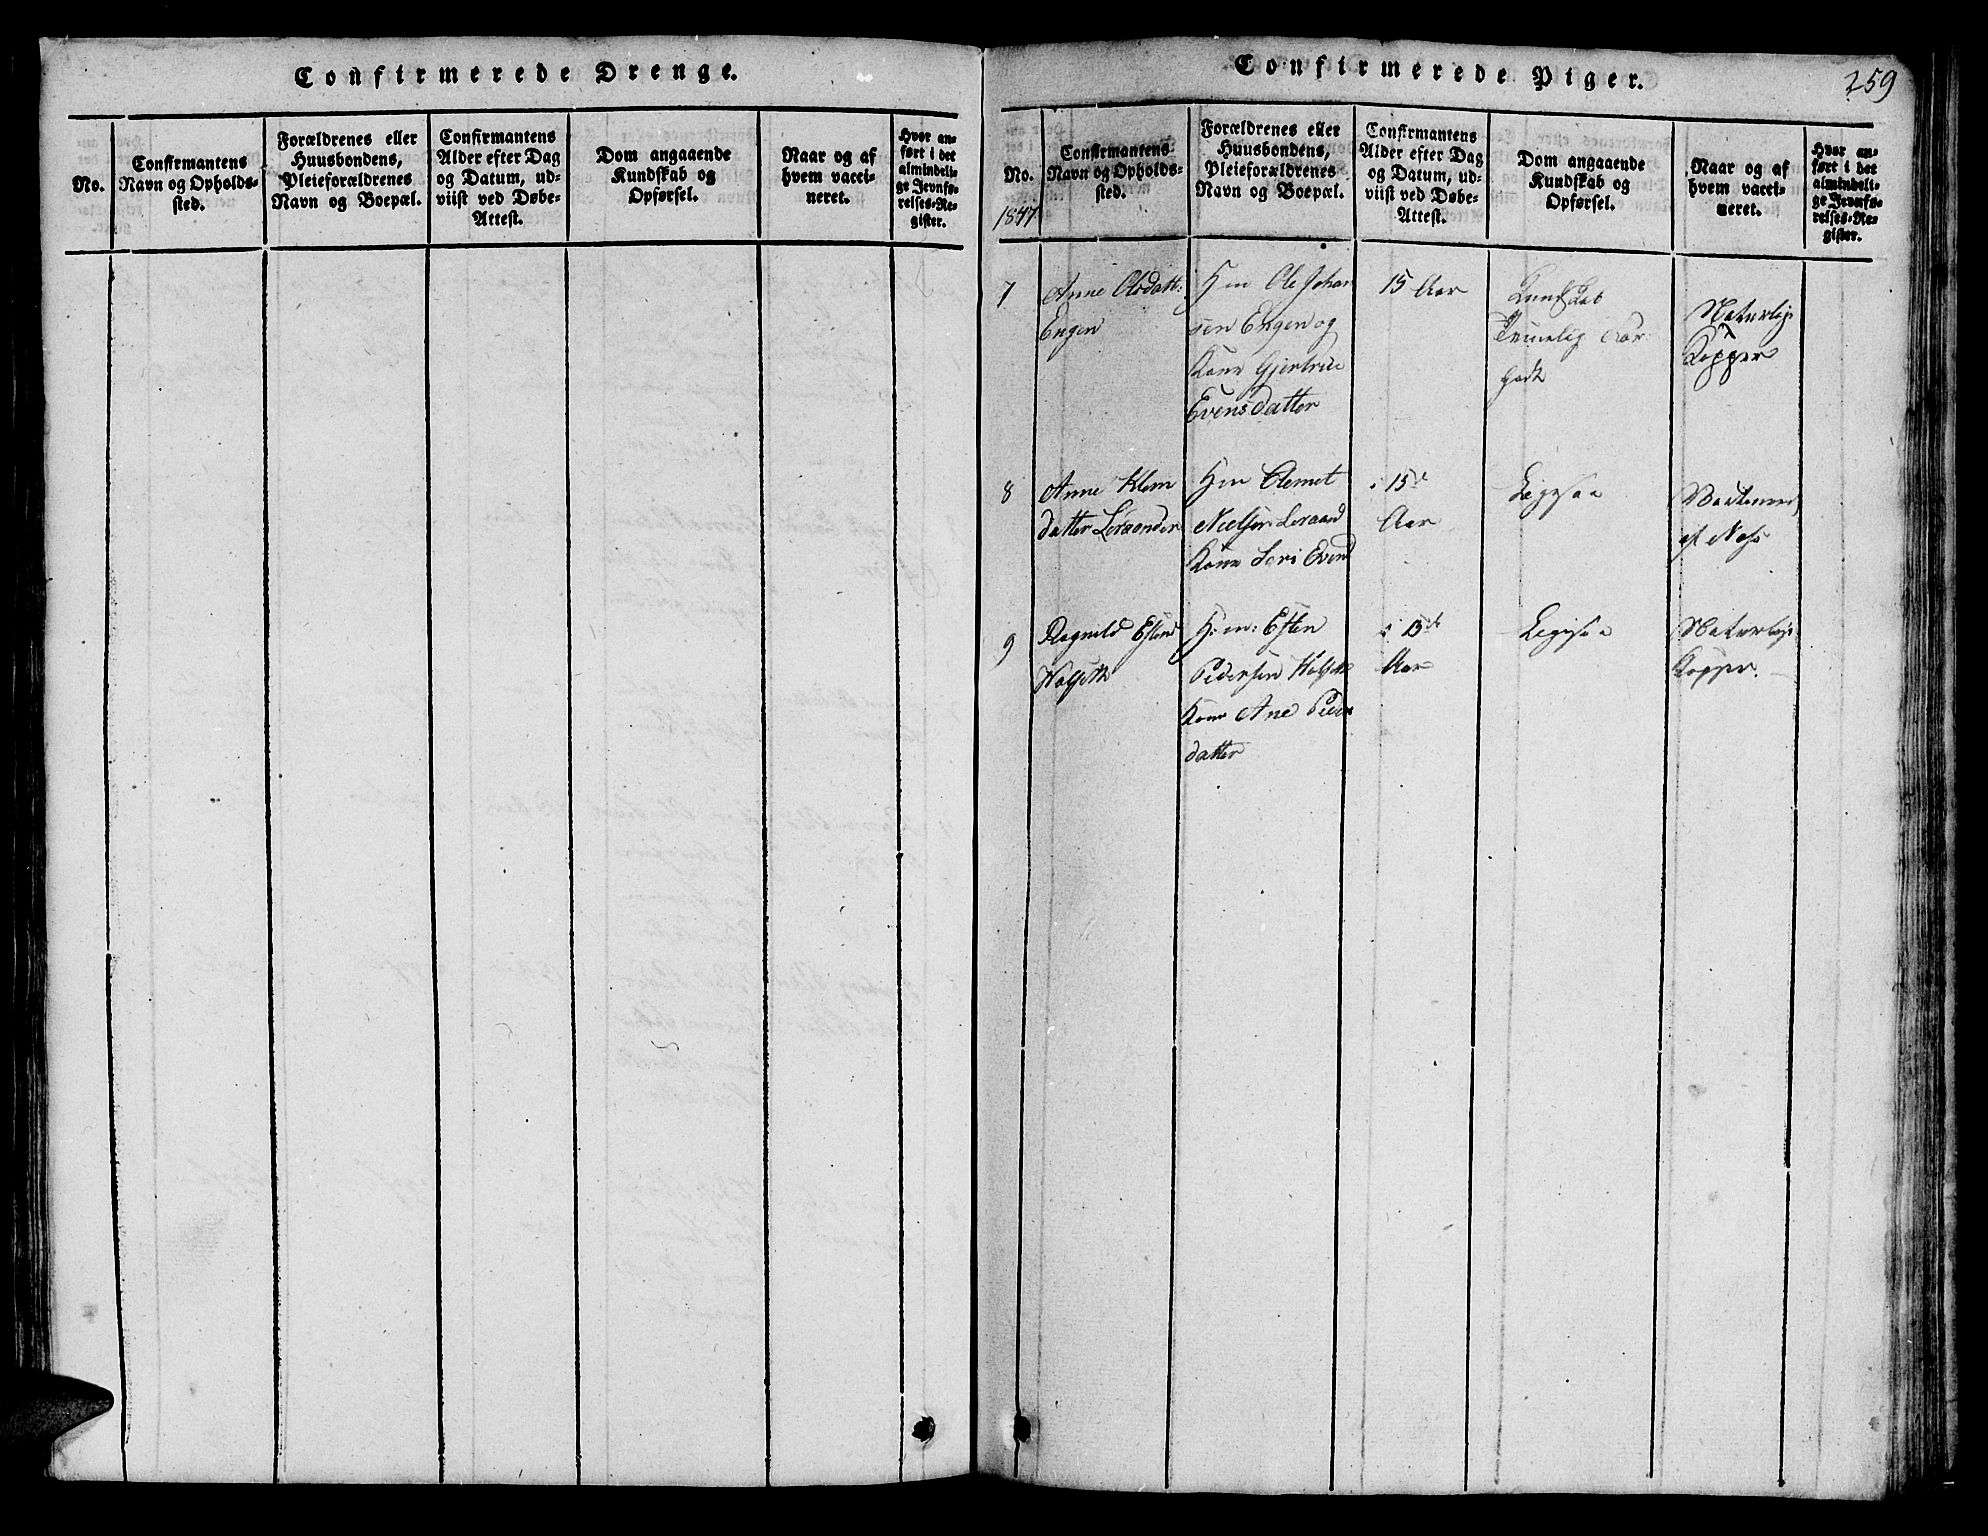 Confirmerede Drenge.
No.
Confirmantens
Navn og Opholds-
sted.
Forældrenes eller
Huusbondens,
Pleieforældrenes
Navn og Boepæl.
Confirmantens
Alder efter Dag
og Datum, ud-
viist ved Døbe-
Attest.
Dom angaaende
Kundskab og
Opførsel.
Naar og af
hvem vacci-
neret.
Hvor an-
ført i det
almindeli-
ge Jevnfø-
relses-Re-
gister.
Confirmerede Piger.
259
No.
1847
Confirmantens
Navn og Opholds-
sted.
Forældrenes eller
Huusbondens,
Pleieforældrenes
Navn og Boepæl.
Confirmantens
Alder efter Dag
og Datum, ud-
viist ved Døbe-
Attest.
Dom angaaende
Kundskab og
Opførsel.
Naar og af
hvem vacci-
neret.
Hvor an-
ført i det
almindeli-
ge Jevnfø-
relses-Re-
gister.
7
Anne Olsdatt:
Engen
Ole Johan
sen Engen og
Kone Gjertrue
Evensdatter
15 Aar
Kundskab
Temelig
godt
Naturlig
Kopper
8
Anne Klem
datter Loraander
Clemet
Nielsen Loraand
Kone Evend
15de
Aar
Ligesaa
af
9
Ragnild Estend
Holseth
Esten
Pedersen Holseth
Kone Ane Peder
datter
15de
Aar
Ligesaa
Naturlige
Kopper.